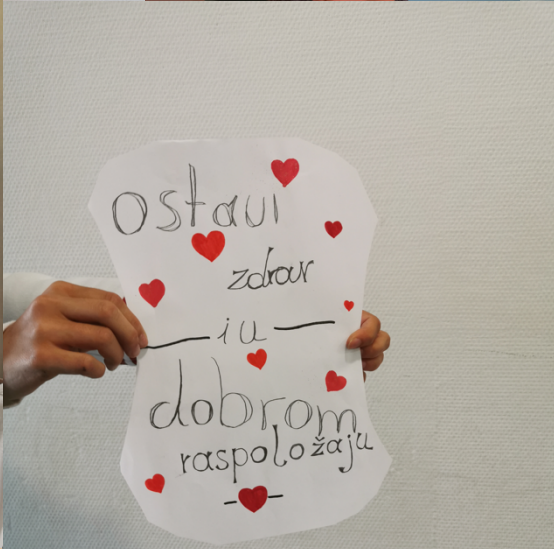 ostavi
zdrav
i u
dobrom
raspoložaju